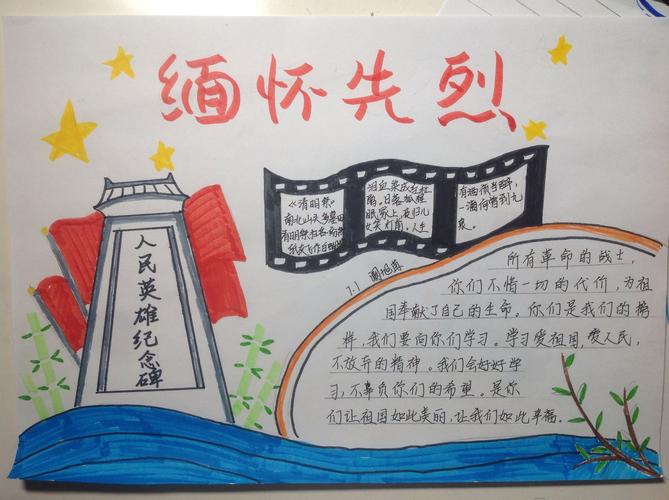 缅怀先烈
《清明祭
南北山头多墓田
清明祭扫各纷然
纸灰飞作白
泪血染成红杜
鹃。日落狐狸
眠冢上,夜归儿
女笑灯前。人生
有酒须当醉,
一滴何曾到九
泉。
7.1
人民英雄纪念碑
所有革命的战士,
你们不惜一切的代价,为祖
国奉献了自己的生命。你们是我们的榜
样,我们要向你们学习。学习爱祖国,爱人民,
不放弃的精神。我们会好好学
习,不辜负你们的希望。是你
们让祖国如此美丽,让我们如此幸福.